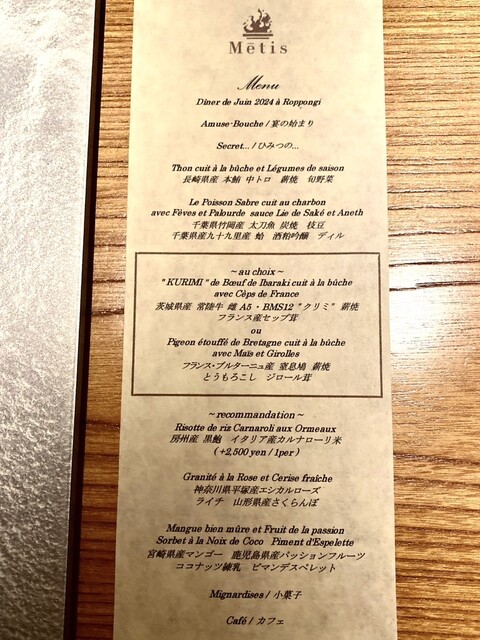 Mētis
Menu
Dîner de Juin 2024 à Roppongi
Amuse-Bouche / 宴の始まり
Secret... / ひみつの...
Thon cuit à la bûche et Légumes de saison
長崎県産 本鮪 中トロ 薪焼 旬野菜
Le Poisson Sabre cuit au charbon
avec Fèves et Palourde sauce Lie de Saké et Aneth
千葉県竹岡産 太刀魚 炭焼 枝豆
千葉県産九十九里産 蛤 酒粕吟醸 ディル
~ au choix ~
" KURIMI " de Bœuf de Ibaraki cuit à la bûche
avec Cèps de France
茨城県産 常陸牛 雌 A5・BMS12 " クリミ " 薪焼
フランス産セップ茸
ou
Pigeon étouffé de Bretagne cuit à la bûche
avec Maïs et Girolles
フランス・ブルターニュ産 窒息鳩 薪焼
とうもろこし ジロール茸
~ recommandation ~
Risotte de riz Carnaroli aux Ormeaux
房州産 黒鮑 イタリア産カルナローリ米
( +2,500 yen / 1per )
Granité à la Rose et Cerise fraîche
神奈川県平塚産エシカルローズ
ライチ 山形県産さくらんぼ
Mangue bien mûre et Fruit de la passion
Sorbet à la Noix de Coco Piment d'Espelette
宮崎県産マンゴー 鹿児島県産パッションフルーツ
ココナッツ練乳 ピマンデスペレット
Mignardises / 小菓子
Café / カフェ